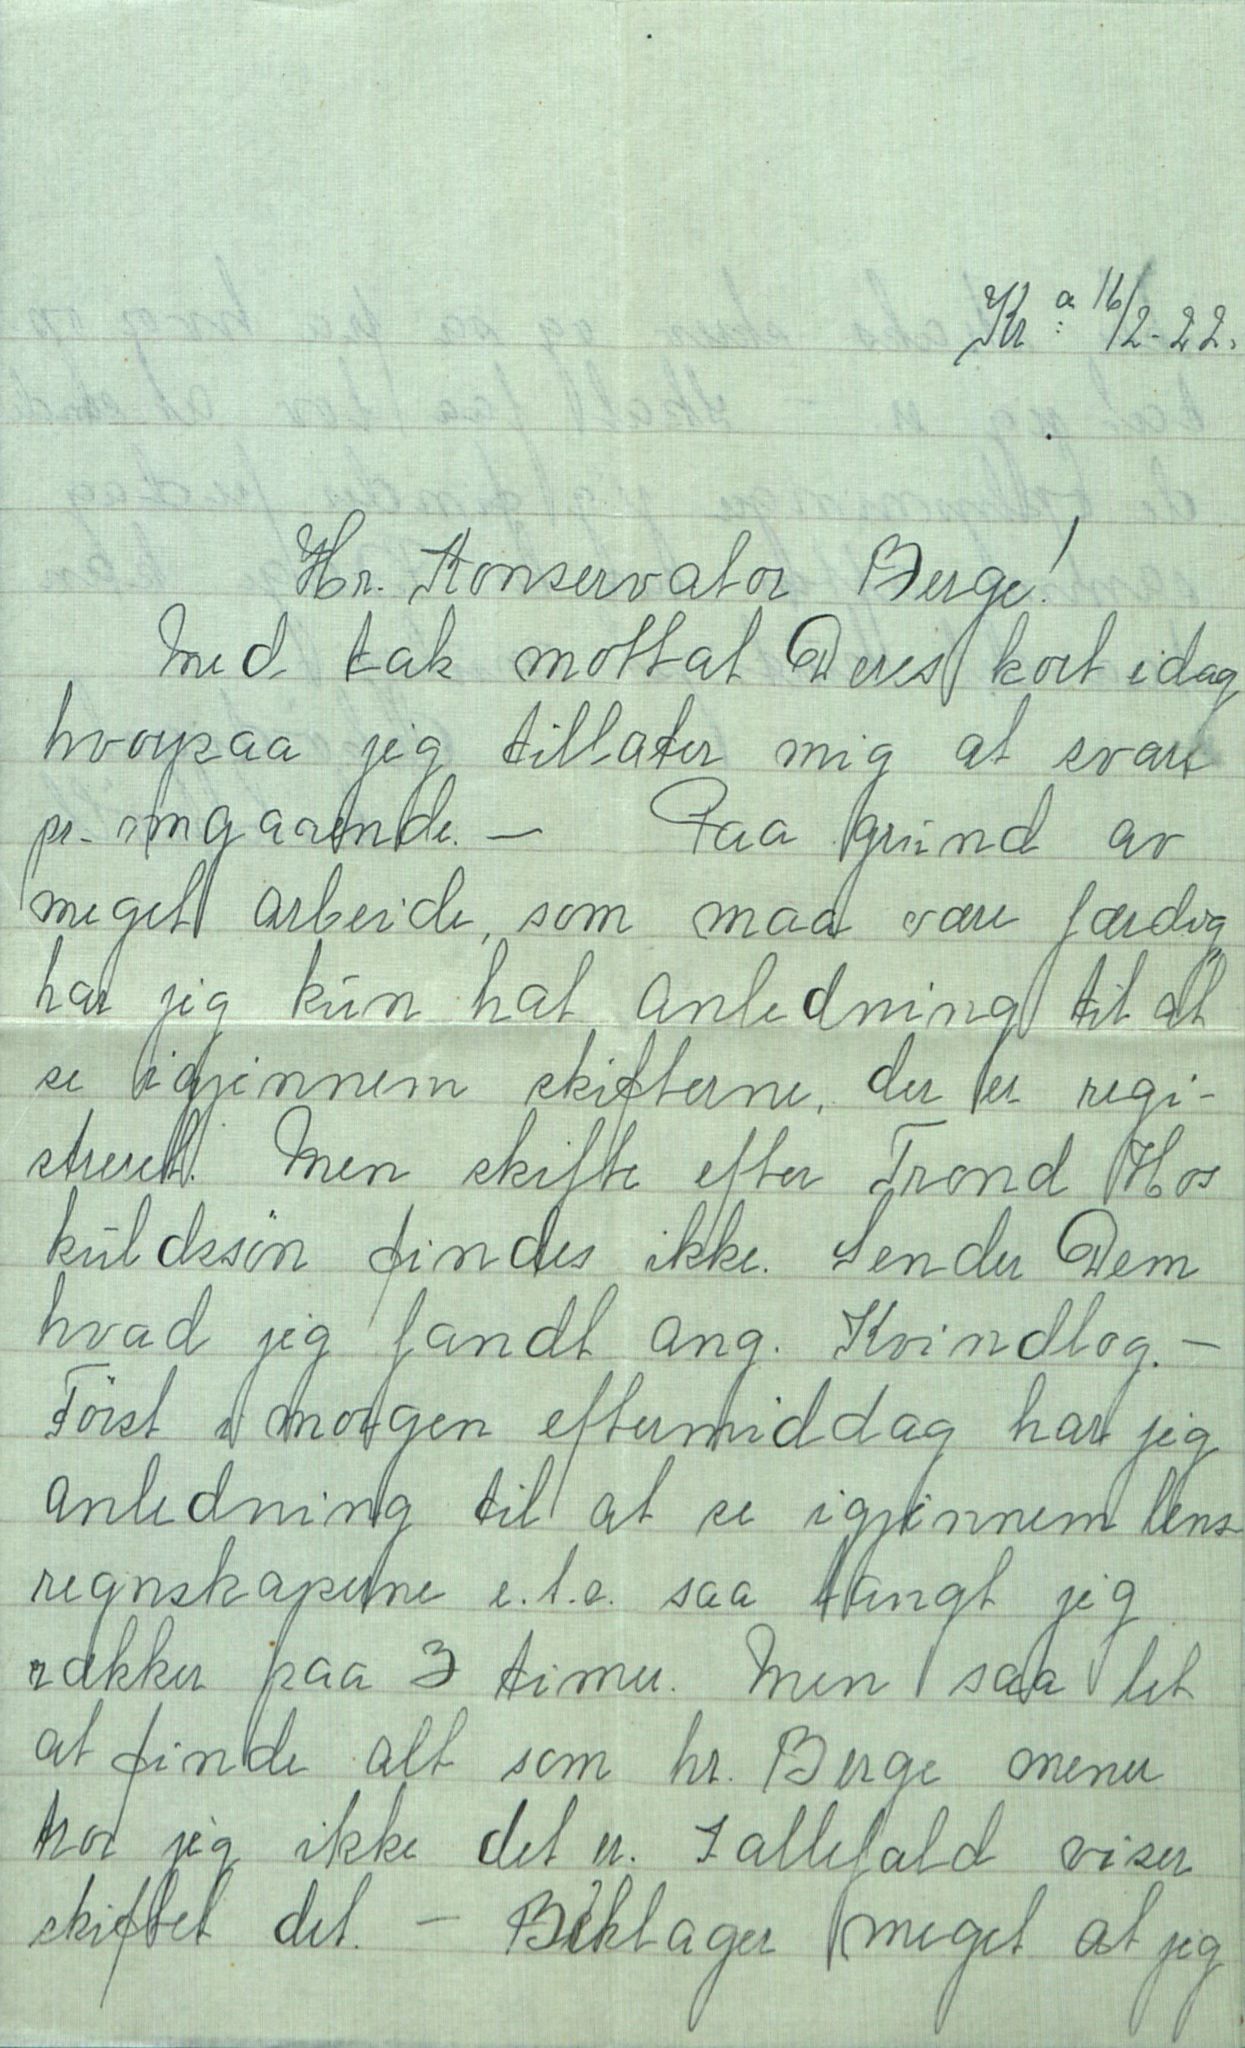 Kr.a 16/2-22.
Hr. Konservator Berge!
Med tak mottat Deres kort idag
hvorpaa jeg tillater mig at svare
pr. omgaaende. — Paa grund av
meget arbeide, som maa være færdig
har jeg kun hat anledning til at
se igjennem skifterne, der er regi-
streret. Men skifte efter Trond Hos
kuldssön findes ikke. Sender Dem
hvad jeg fandt ang. Kvindlog. —
Först i morgen eftermiddag har jeg
anledning til at se igjennem lens
regnskaperne e.l.c. saa langt jeg
rækker paa 3 timer. Men saa let
at finde alt som hr. Berge mener
tror jeg ikke det er. Iallefald viser
skiftet det. — Beklager meget at jeg